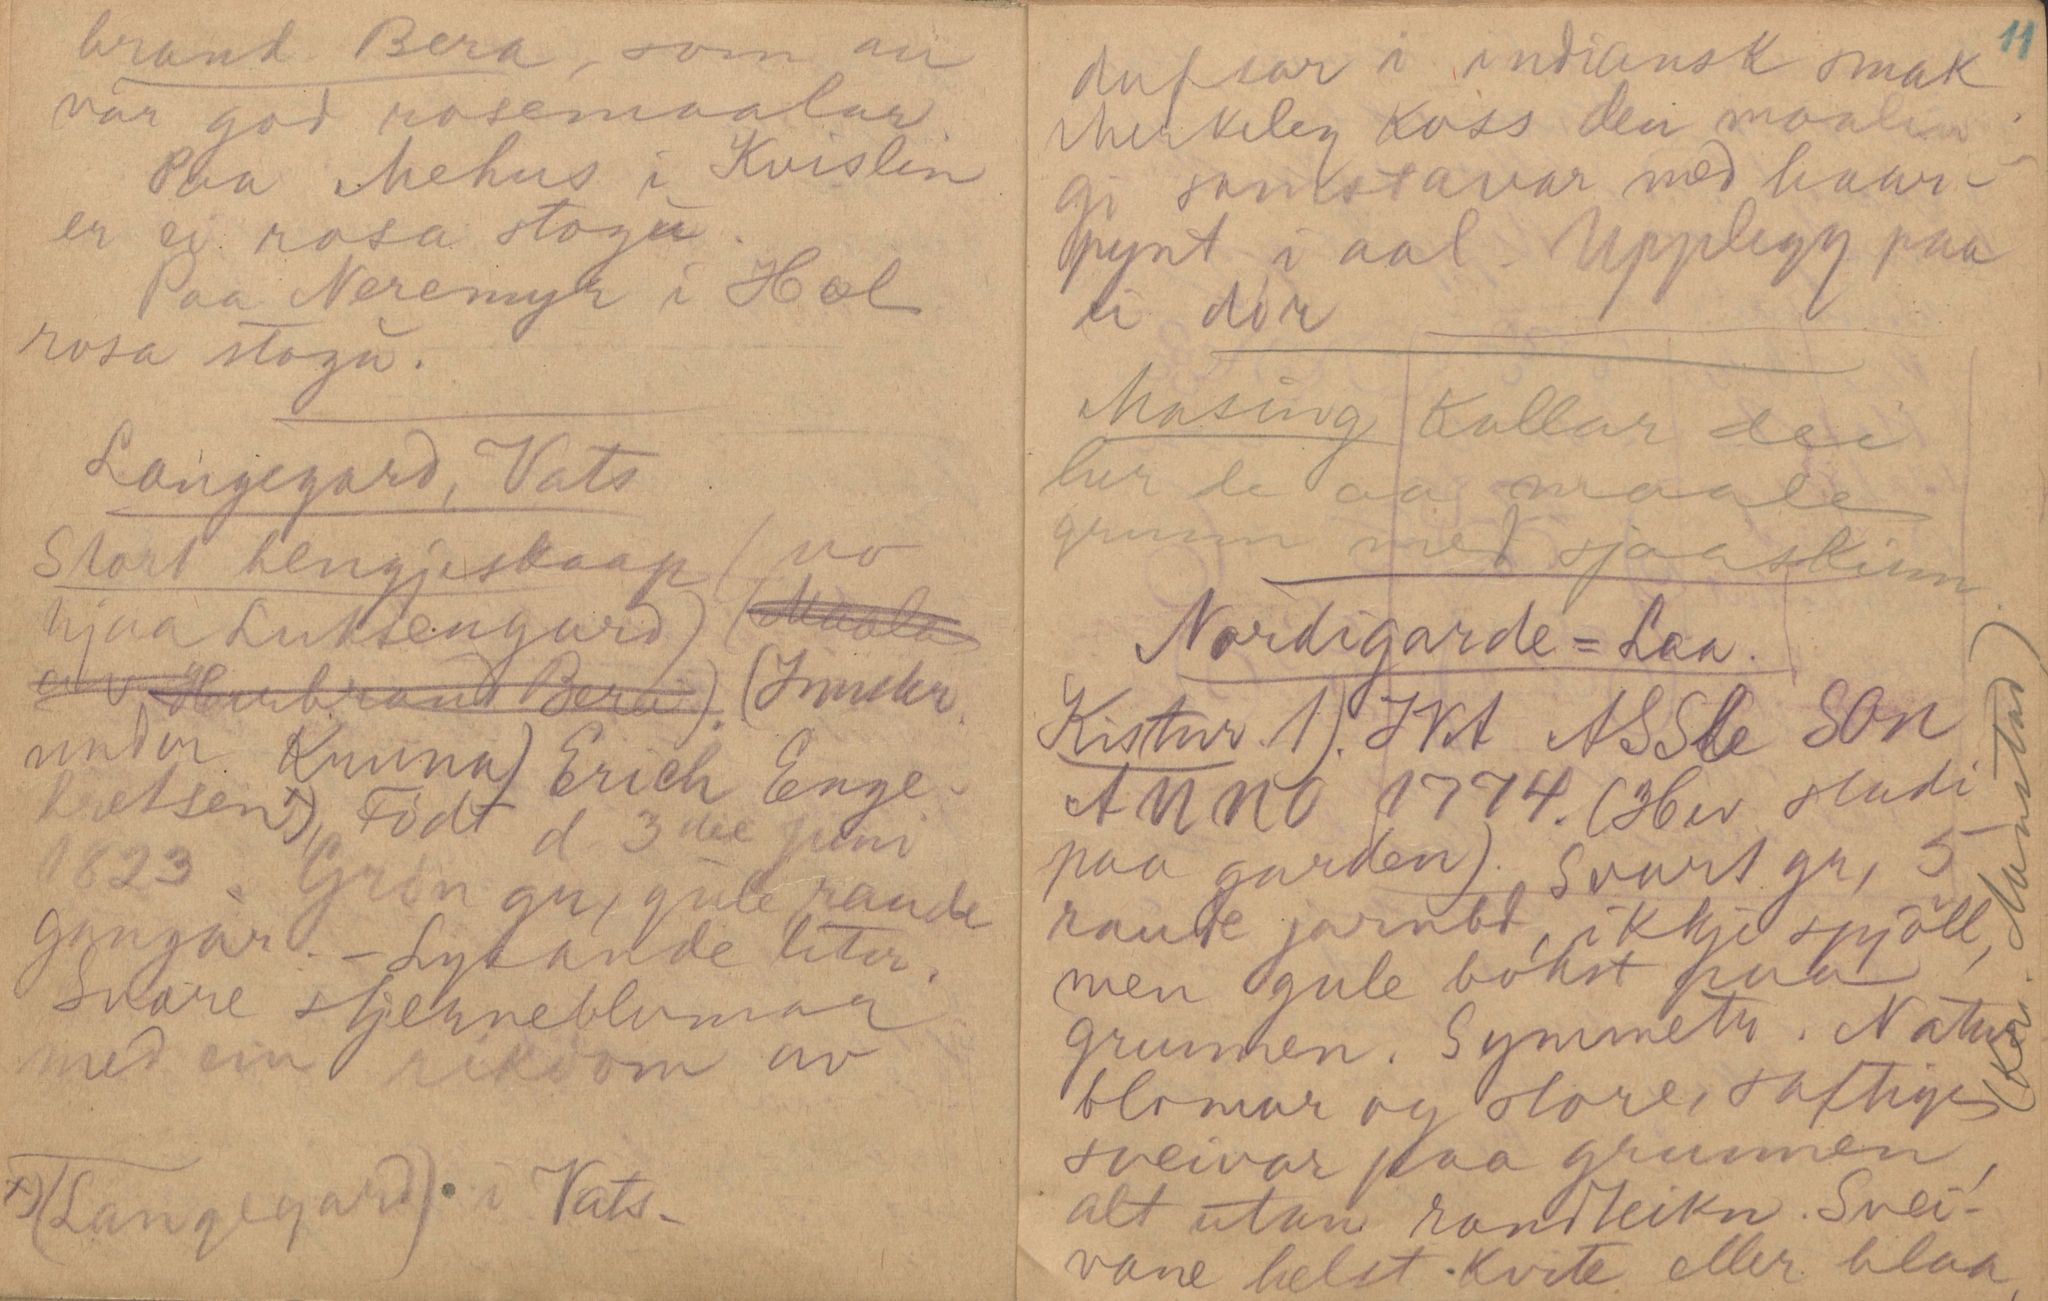 brand Bera, som au
var god rosemaalar.
Paa Mehus i Kvislin
er ei rosa stogu.
Paa Neremyr i Hol
rosa stogu.
Langegard, Vats
Stort hengjeskaap (no
hjaa Luksengard) (Maala
av Herbrand Bera). (Innskr.
under Kruna) Erich Enge-
bretsen x), Födt d 3die juni
1823. Grön gr, gule raude
gangar. - Lysande liter.
Svære stjerneblomar
med ein rikdom av
x) (Langegard) i Vats-
11
duskar i indiansk smak
Merkeleg koss den maalin-
gi samstavar med haar-
pynt i aal. Upplegg paa
ei dör
Masing kallar dei
her de aa maale
grunn med sjaaskinn.
Nordigarde = Laa.
Kistur 1). IVA ASSle SON
ANNO 1774. (Hev stadi
paa garden). Svart gr, 5
raude jarnbd, ikkje spjöll,
men gule bokst paa
grunnen. Symmetr. Natur
blomar og store, saftige
sveivar paa grunnen,
alt utan randteikn. Svei-
vane helst kvite eller blaa,